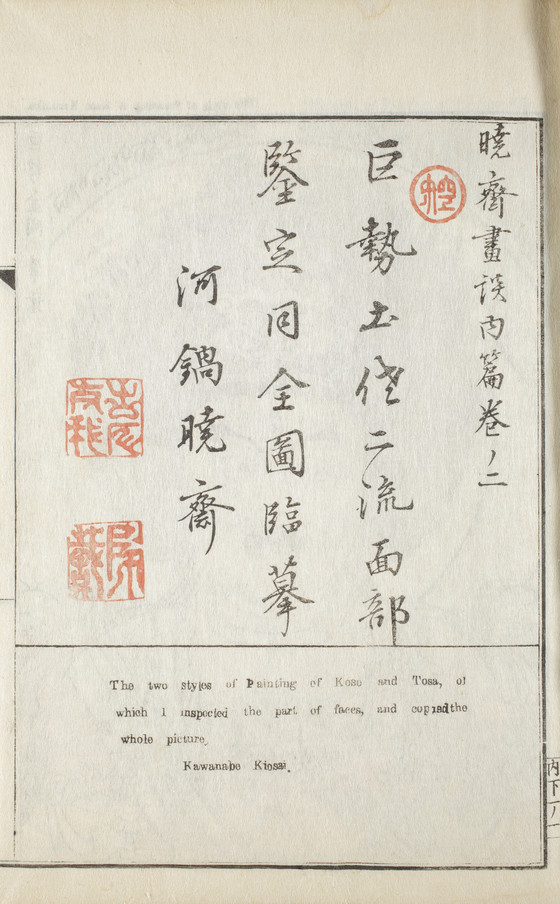 暁齋畫談内篇巻ノ二
巨勢土佐二流面部
鑒定同全圖臨摹
河鍋暁齋
The two styles of Painting of Kose and Tosa, of
which I inspected the part of faces, and copiedthe
whole picture.
Kawanabe Kiosai.
内下ノ一